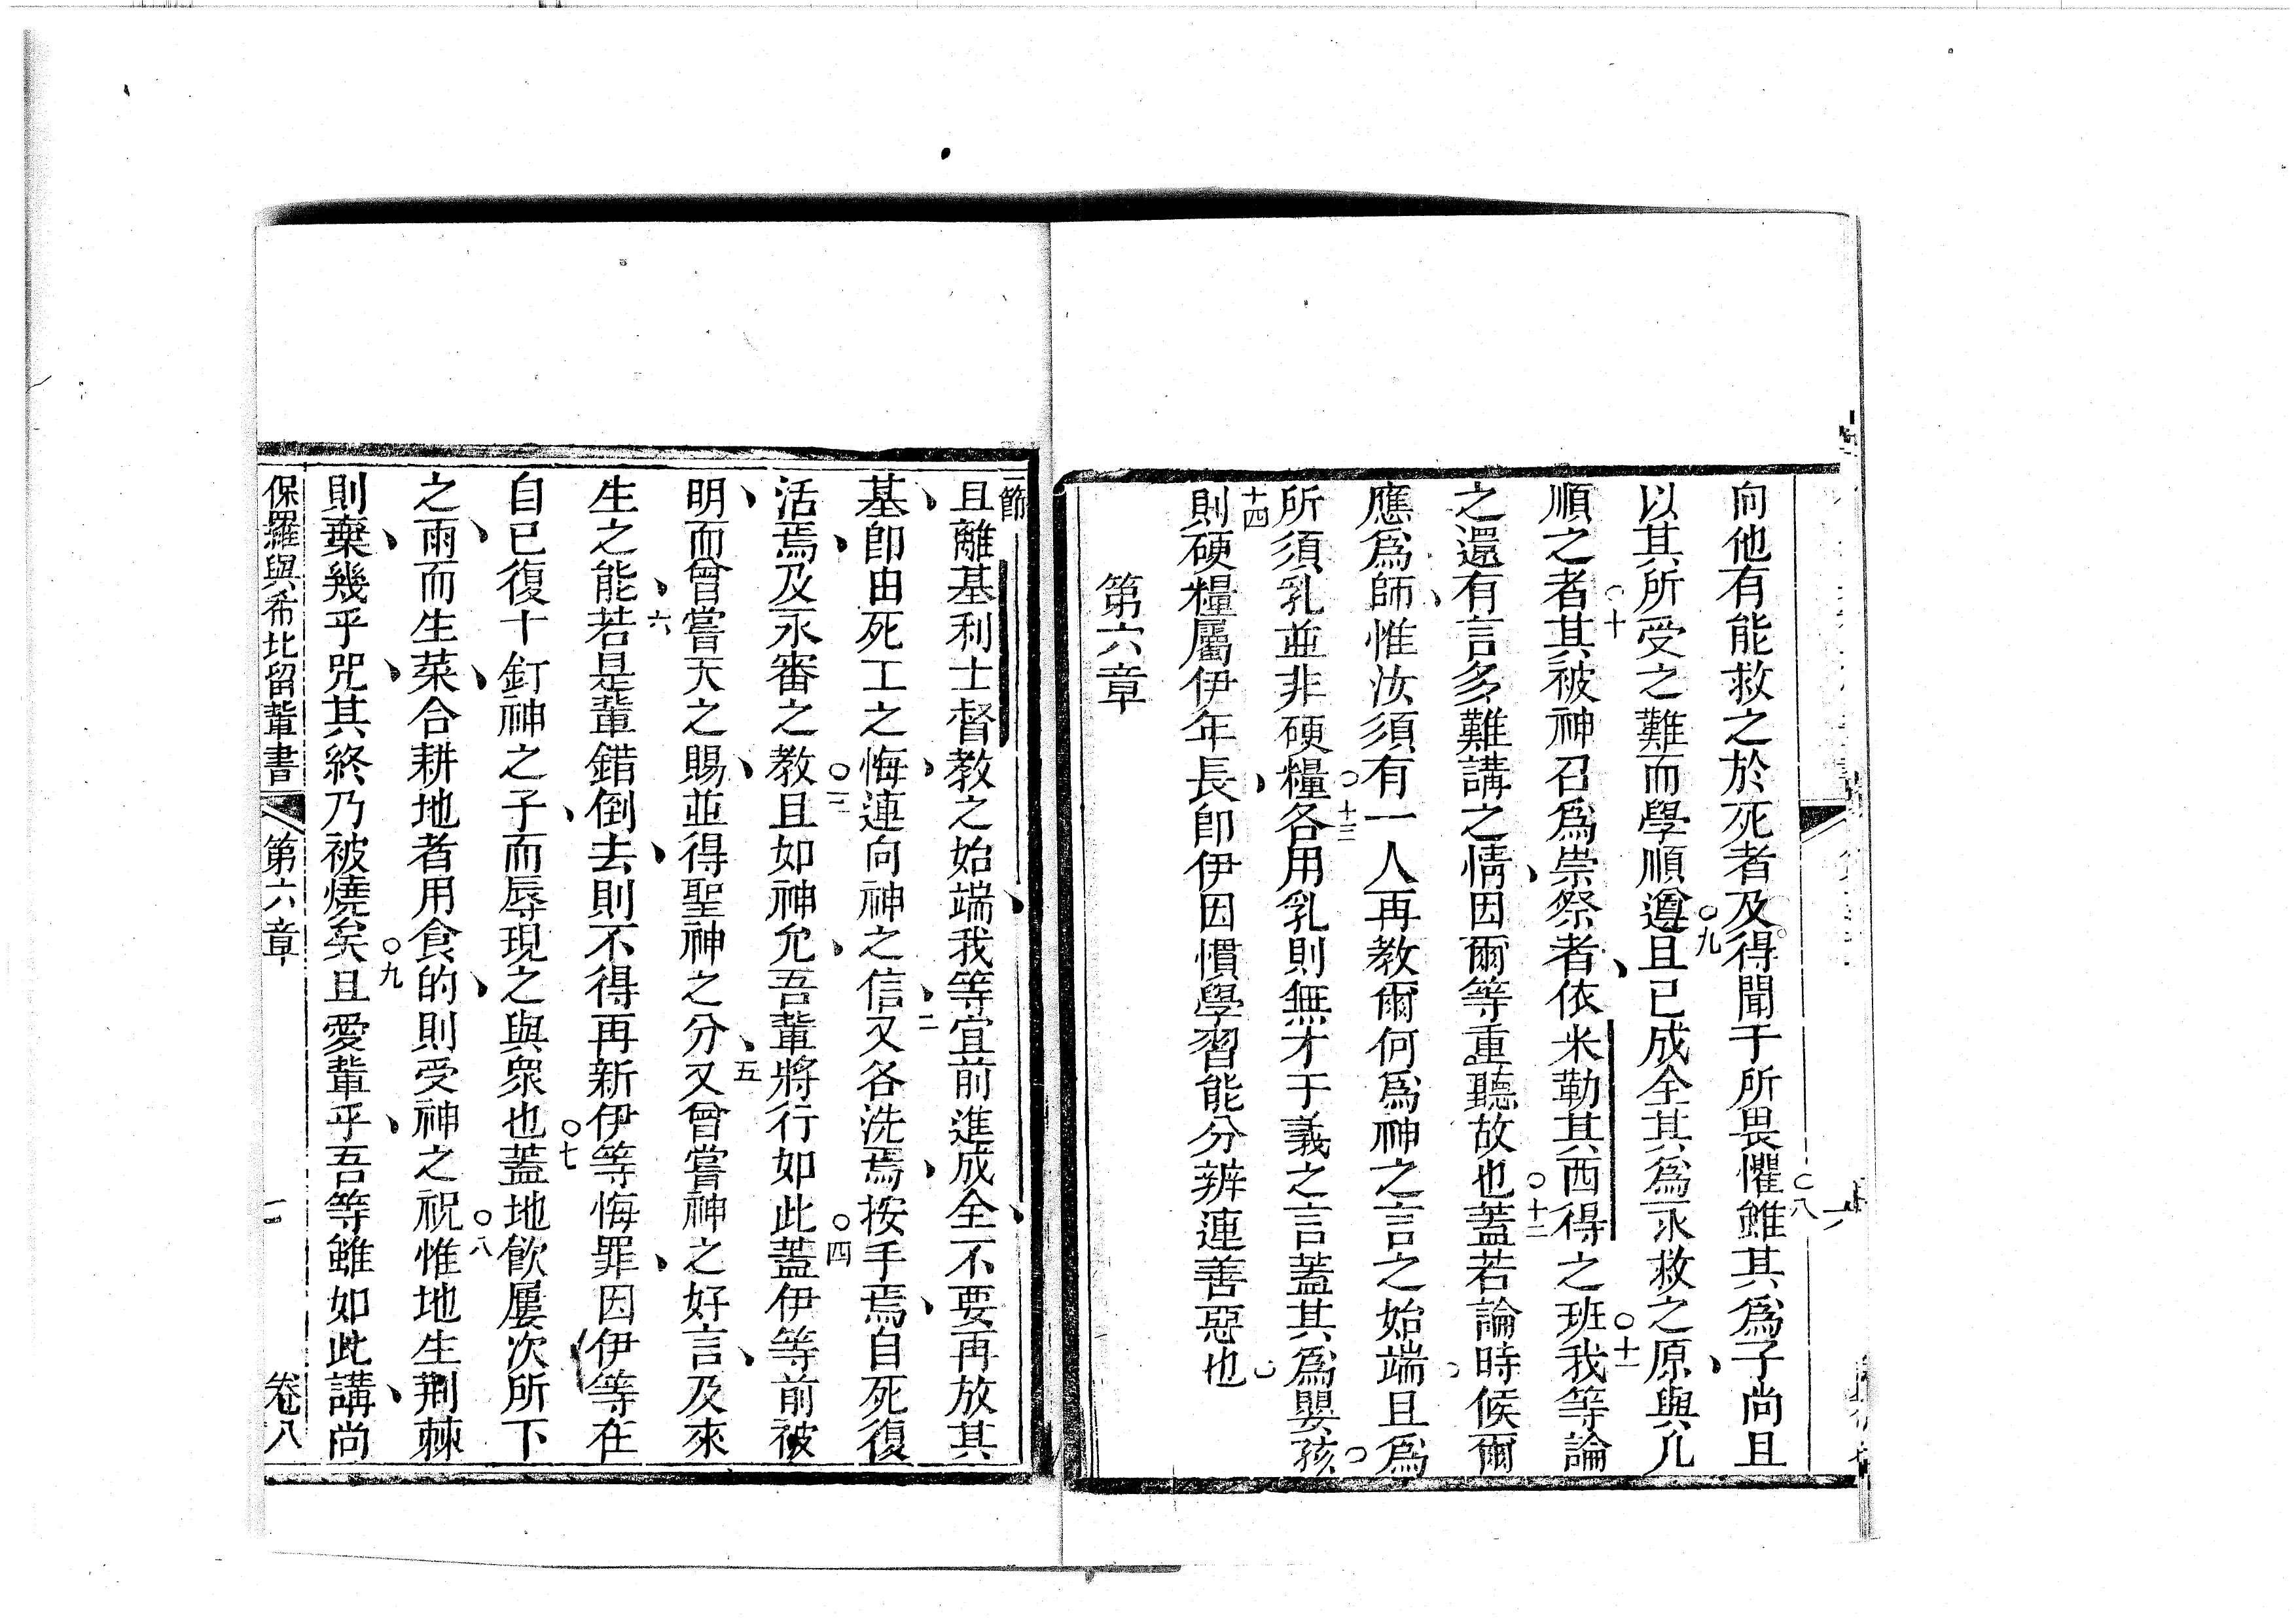 向他有能救之於死者及得聞于所畏懼雖其爲子尚且
八
以其所受之難而學順遵且已成全其爲永救之原與凡
九
順之者其被神召爲崇祭者依米勒其西得之班我等論
十
十一
之還有言多難講之情因爾等重聽故也蓋若論時候爾
十二
應爲師惟汝須有一人再教爾何爲神之言之始端且爲
所須乳並非硬糧各用乳則無才于義之言蓋其爲嬰孩
十三
則硬糧屬伊年長即伊因慣學習能分辨連善惡也
十四
第六章
一節
且離基利士督教之始端我等宜前進成全不要再放其
基即由死工之悔連向神之信又各洗焉按手焉自死復
二
活焉及永審之教且如神允吾輩將行如此蓋伊等前被
三
四
明而曾嘗天之賜並得聖神之分又曾嘗神之好言及來
五
生之能若是輩錯倒去則不得再新伊等悔罪因伊等在
六
自已復十釘神之子而辱現之與衆也蓋地飲屢次所下
七
之雨而生菜合耕地者用食的則受神之祝惟地生荆棘
八
則棄幾乎咒其終乃被燒矣且愛輩乎吾等雖如此講尚
九
保羅與希比留輩書 第六章 卷八